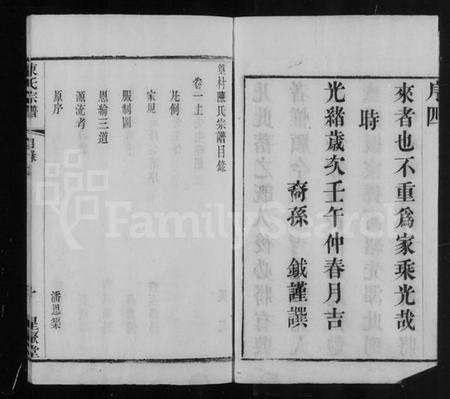 序四
來者也不重爲家乘光哉
時
光緒歲次壬午仲春月吉
裔孫 鉞謹譔
陳氏宗譜目錄
卷一上
凡例
宗規
服制圖
恩綸三道
源流考
原序
潘恩榮
陳氏宗譜
目錄
FamilySearch